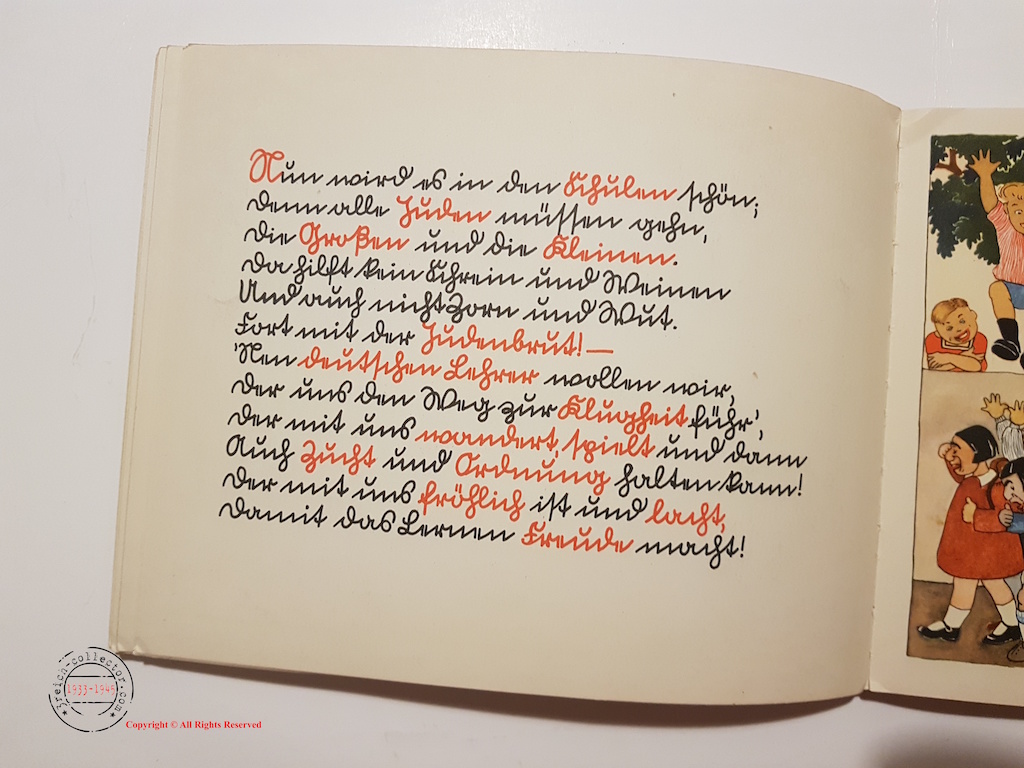 Nun wird es in den Schulen schön;
Denn alle Juden müssen gehn,
Die Großen und die Kleinen.
Da hilft kein Schrein und Weinen
Und auch nicht Zorn und Wut.
Fort mit der Judenbrut! —
'Nen deutschen Lehrer wollen wir,
Der uns den Weg zur Klugheit führ',
Der mit uns wandert, spielt und dann
Auch Zucht und Ordnung halten kann!
Der mit uns fröhlich ist und lacht,
Damit das Lernen Freude macht!
3reich-collector.com
1933-1945
Copyright © All Rights Reserved